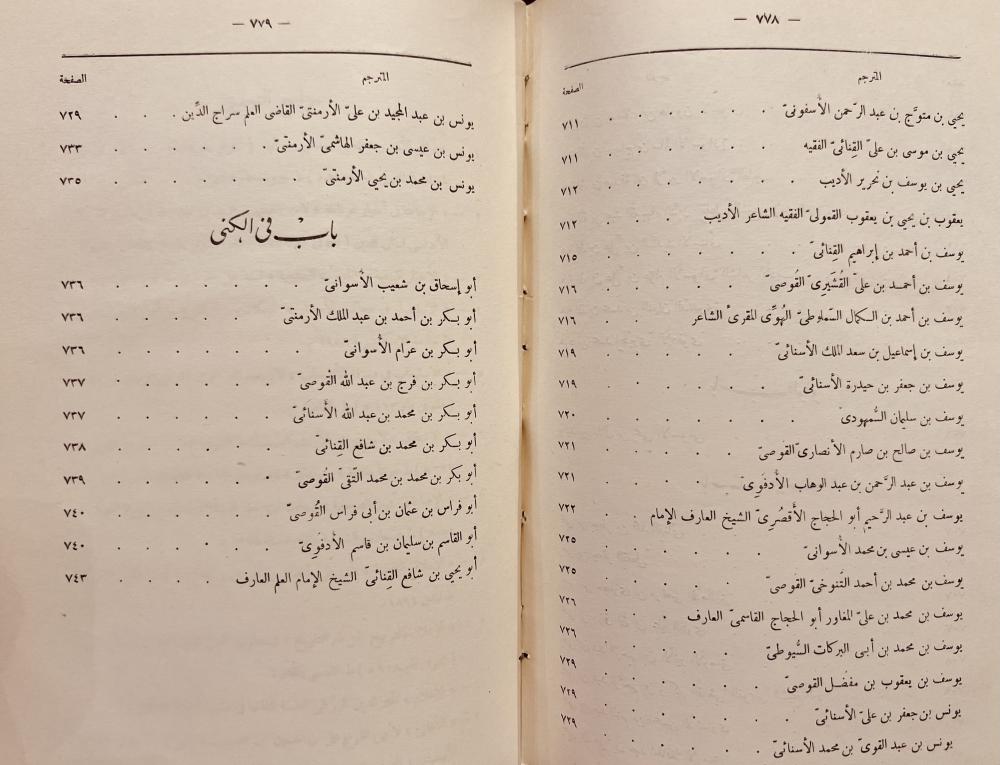 — ٧٧٨ —
المترجم الصفحة
يحيى بن متوج بن عبد الرَّحمن الأسفونىّ . . . . . ٧١١
يحيى بن موسى بن علىّ القِنائىّ الفقيه . . . . . ٧١١
يحيى بن يوسف بن نحرير الأديب . . . . . . ٧١٢
يعقوب بن يحيى بن يعقوب القمولىّ الفقيه الشاعر الأديب . . . ٧١٢
يوسف بن أحمد بن إبراهيم القِنائىّ . . . . . . ٧١٥
يوسف بن أحمد بن علىّ القُشَيرِىّ القُوصىّ . . . . . ٧١٦
يوسف بن أحمد بن الكمال السّملوطىّ الهُوِّى المقرئ الشاعر . . ٧١٦
يوسف بن إسماعيل بن سعد الملك الأسنائىّ . . . . . ٧١٩
يوسف بن جعفر بن حيدرة الأسنائىّ . . . . . . ٧١٩
يوسف بن سليمان السُّمهودىّ . . . . . . ٧٢٠
يوسف بن صالح بن صارم الأنصارىّ القوصىّ . . . . . ٧٢١
يوسف بن عبد الرَّحمن بن عبد الوهاب الأُدفوِىّ . . . . ٧٢١
يوسف بن عبد الرَّحيم أبو الحجاج الأَقصُرِىّ الشيخ العارف الإمام . . ٧٢٢
يوسف بن عيسى بن محمد الأسوانىّ . . . . . . ٧٢٥
يوسف بن محمد بن أحمد التَّنوخىّ القوصىّ . . . . . ٧٢٥
يوسف بن محمد بن علىّ المغاور أبو الحجاج القاسمىّ العارف . . . ٧٢٦
يوسف بن محمد بن أبى البركات السُّيوطىّ . . . . . ٧٢٦
يوسف بن يعقوب بن مفضّل القوصىّ . . . . . ٧٢٩
يونس بن جعفر بن علىّ الأسنائىّ . . . . . . ٧٢٩
يونس بن عبد القوىّ بن محمد الأسنائىّ . . . . . . ٧٢٩
— ٧٧٩ —
المترجم الصفحة
يونس بن عبد المجيد بن علىّ الأرمنتىّ القاضى العلم سراج الدِّين . . ٧٢٩
يونس بن عيسى بن جعفر الهاشمىّ الأرمنتىّ . . . . . . ٧٣٣
يونس بن محمد بن يحيى الأرمنتىّ . . . . . . ٧٣٥
باب فى الكنى
أبو إسحاق بن شعيب الأسوانىّ . . . . . . ٧٣٦
أبو بكر بن أحمد بن عبد الملك الأرمنتىّ . . . . . . ٧٣٦
أبو بكر بن عرّام الأسوانىّ . . . . . . ٧٣٦
أبو بكر بن فرج بن عبد الله القوصىّ . . . . . . ٧٣٧
أبو بكر بن محمد بن عبد الله الأسنائىّ . . . . . . ٧٣٧
أبو بكر بن محمد بن شافع القِنائىّ . . . . . . ٧٣٨
أبو بكر بن محمد بن محمد التّقىّ القُوصىّ . . . . . . ٧٣٩
أبو فراس بن عثمان بن أبى فراس القُوصىّ . . . . . . ٧٤٠
أبو القاسم بن سليمان بن قاسم الأُدفوِىّ . . . . . . ٧٤٠
أبو يحيى بن شافع القِنائىّ الشيخ الإمام العلم العارف . . . . ٧٤٣